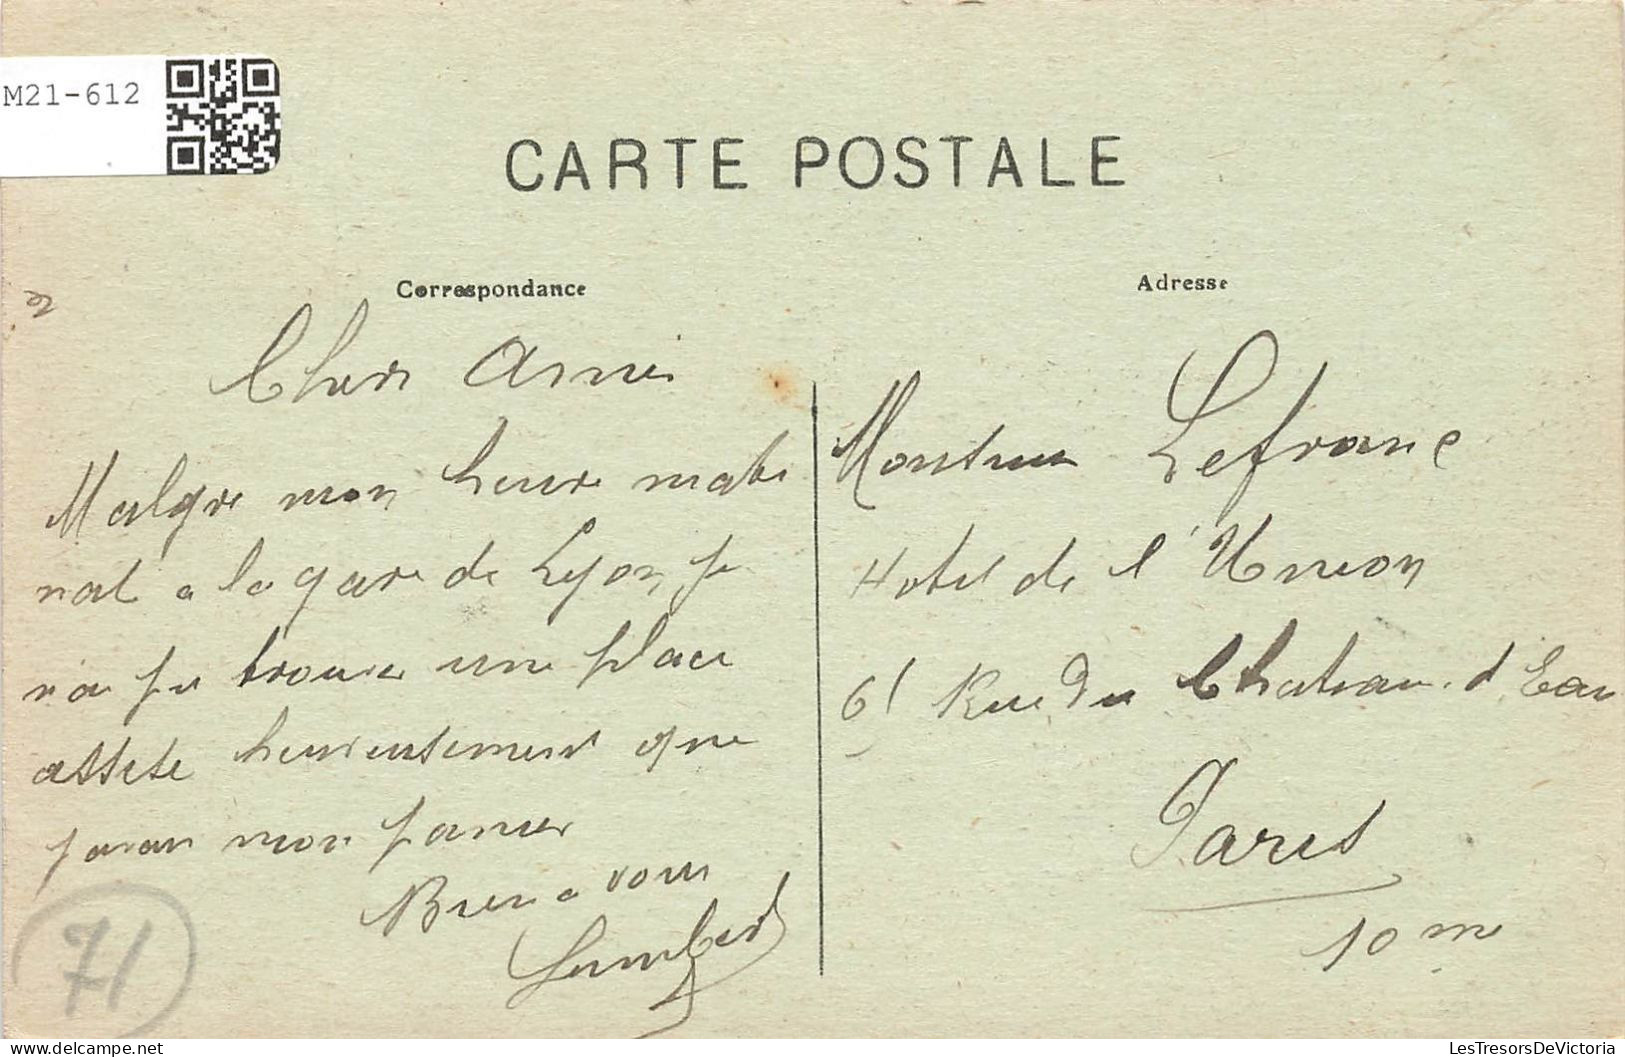 M21-612
CARTE POSTALE
Correspondance
Cher Ami
Malgre mon heure mati
nal a la gare de Lyon je
n'ai pu trouver une place
assise heureusement que
javais mon panier
Bien a vous
Lambert
71
Adresse
Monsieur Lefranc
Hotel de l'Union
61 Rue Du Chateau d'Eau
Paris
10 me
LesTresorsDeVictoria